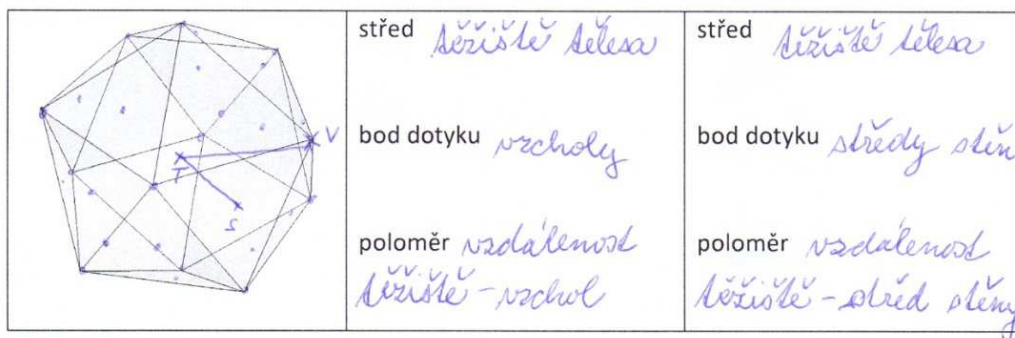 V
T
S
střed těžiště tělesa
bod dotyku vrcholy
poloměr vzdálenost
těžiště - vrchol
střed těžiště tělesa
bod dotyku středy stěn
poloměr vzdálenost
těžiště - střed stěny